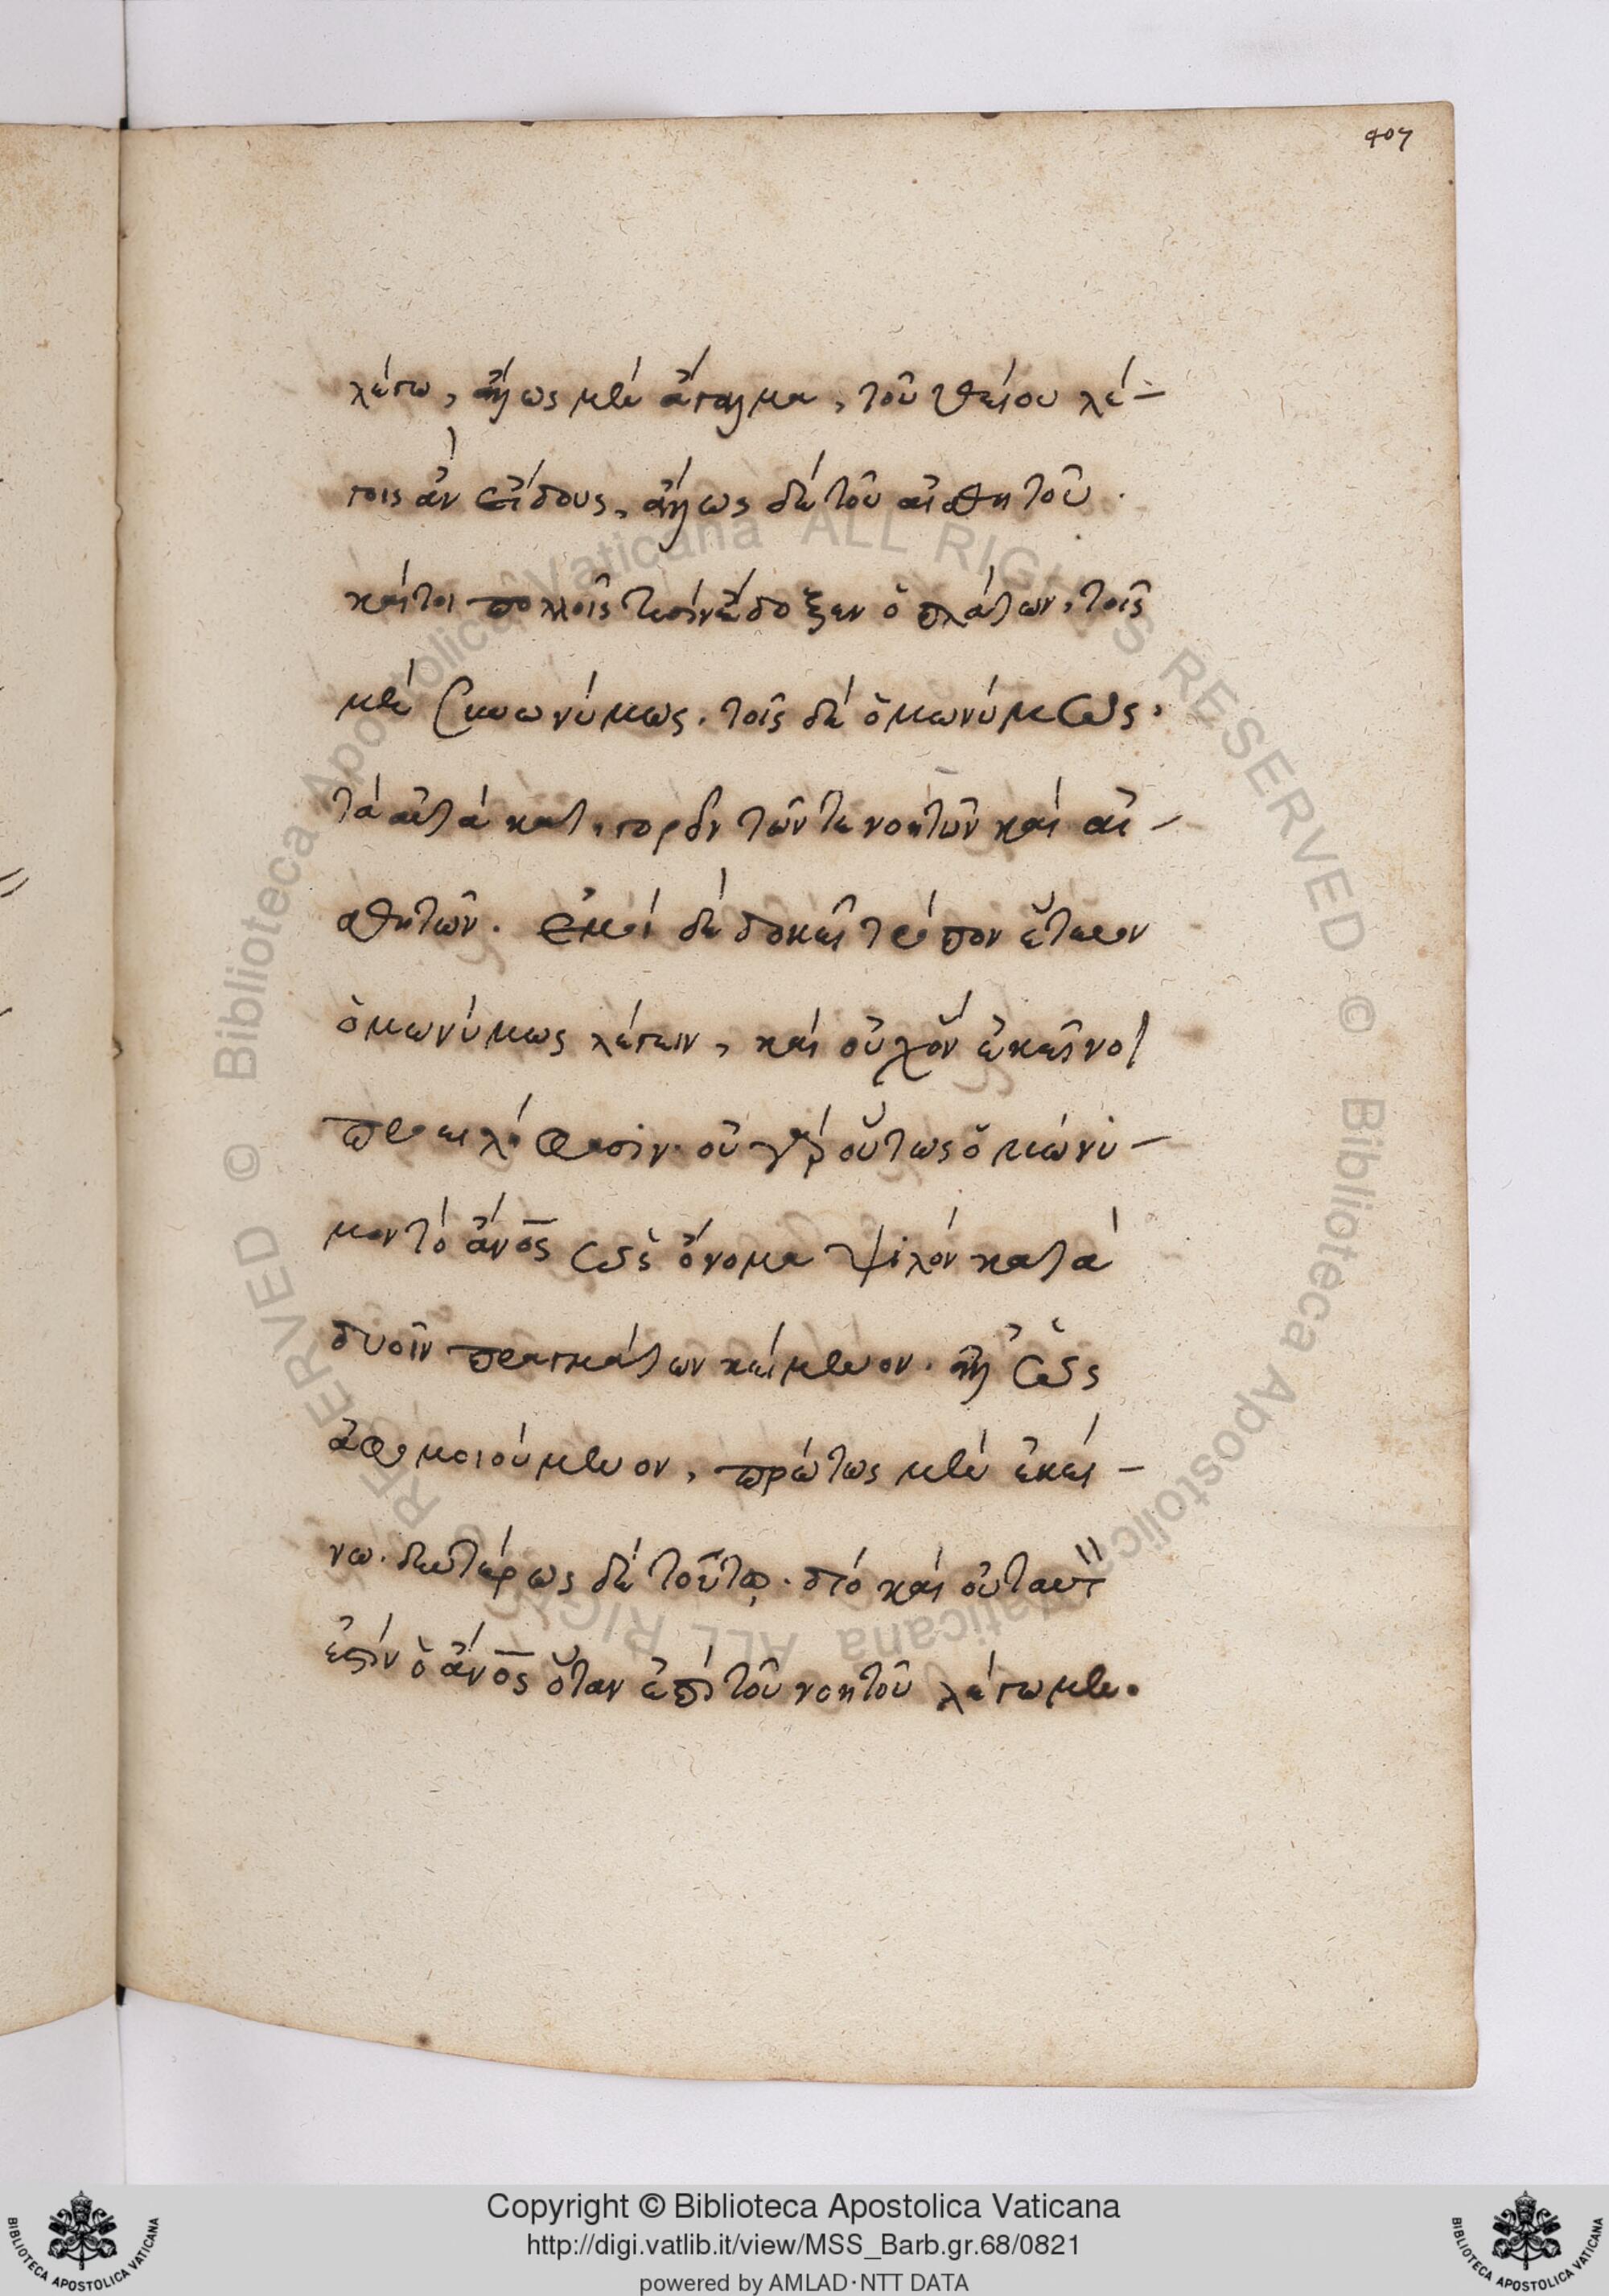 407
λέγω, ἄλλως μὲν ἄγαλμα, τοῦ θείου λέ-
γοις ἂν εἴδους, ἄλλως δὲ τοῦ αἰσθητοῦ.
καίτοι πολλοῖς τισὶν ἔδοξεν ὁ πλάτων, τοῖς
μὲν συνωνύμως. τοῖς δὲ ὁμωνύμως.
τὰ αὐτὰ κατηγορεῖν τῶν τε νοητῶν καὶ αἰ-
σθητῶν. ἐμοὶ δὲ δοκεῖ τρόπον ἕτερον
ὁμωνύμως λέγειν, καὶ οὐχ ὃν ἐκεῖνοι
προειλήφασιν. οὐ γὰρ οὕτως ὁμώνυ-
μον τὸ ἄνος ὡς ὄνομα ψιλὸν κατὰ
δυοῖν πραγμάτων κείμενον. ἀλλ' ὡς
ἀφομοιούμενον, πρώτως μὲν ἐκεί-
νω. δευτέρως δὲ τούτω. διὸ καὶ οὐ ταυτὸ
ἐστὶν ὁ ἄνος ὅταν ἐπὶ τοῦ νοητοῦ λέγωμεν.
Copyright © Biblioteca Apostolica Vaticana
http://digi.vatlib.it/view/MSS_Barb.gr.68/0821
powered by AMLAD·NTT DATA
© Biblioteca Apostolica Vaticana ALL RIGHTS RESERVED
© Biblioteca Apostolica Vaticana ALL RIGHTS RESERVED
BIBLIOTECA APOSTOLICA VATICANA
BIBLIOTECA APOSTOLICA VATICANA